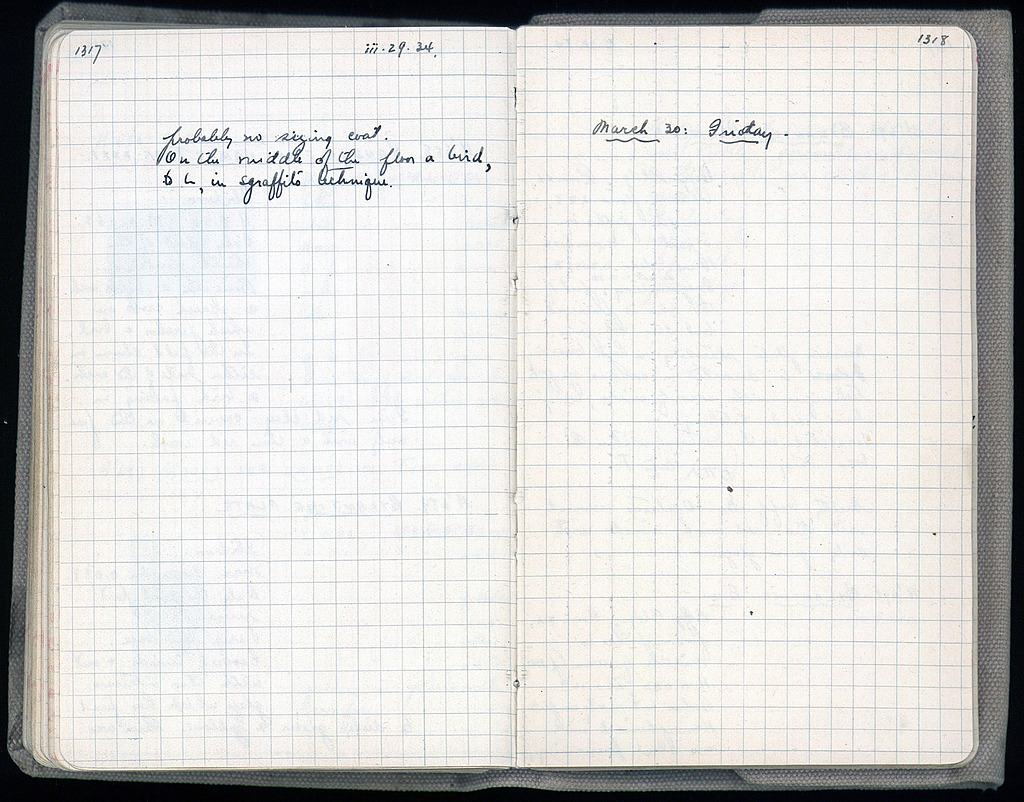 1317
iii.29.34.
probably no sizing coat.
On the middle of the floor a bird,
to L, in sgraffito technique.
1318
March 30: Friday.